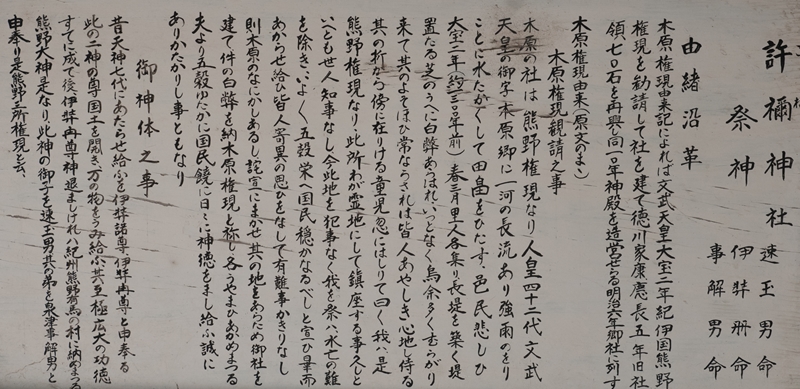 許禰神社
祭神
速玉男命
伊弉册命
事解男命
由緒沿革
木原権現由来記によれば文武天皇大宝二年紀伊国熊野
権現を勧請して社を建て徳川家康慶長五年旧社
領七〇石を再興し同一〇年神殿を造営せらる明治六年郷社に列す
木原権現由来(原文のまゝ)
木原権現観請之事
木原の社は熊野権現なり人皇四十二代文武
天皇の御宇木原郷に一河の長流あり強雨のをり
ことに水たかくして田畠をひたす、邑民悲しひ
大宝二年(約一三〇〇年前)春三月里人各集り長堤を築く堤
置たる芝のうへに白弊あらはれ、いつとなく烏余多くむらがり
来て其のよそほひ常ならされは皆人あやしき心地し侍る
其の折から傍に在りける童児忽にはしりて曰く、我ハ是
熊野権現なり、此所わが霊地にして鎮座する事久しと
いへとも世人知事なし、今此地を犯事なく我を祭ハ、水亡の難
を除き、いよく、五穀栄へ国民穏かなるべしと宣ひ畢而
あからせ給ひ皆人寄異の思ひをなして有難事かきりなし
則木原のなにかしあるし詫宣にまかせ其の地をあらため御社を
建て件の白弊を納木原権現と称し各うやまひあかめまつる
夫より五穀ゆたかに国民饒に日々に神徳をまし給ふ誠に
ありかたかりし事ともなり
御神体之事
昔天神七代にあたらせ給ふを伊弉諾尊伊弉冉尊と申奉る
此の二神の尊国土を開き万の物をうみ給ふ、其至極広大の功徳
すてに成て後伊弉冉尊神退ましけれハ紀州熊野有馬の村に納めまつる
熊野大神是なり、此神の御子を速玉男其の弟を泉津事解男と
申奉り是熊野三所権現と云、